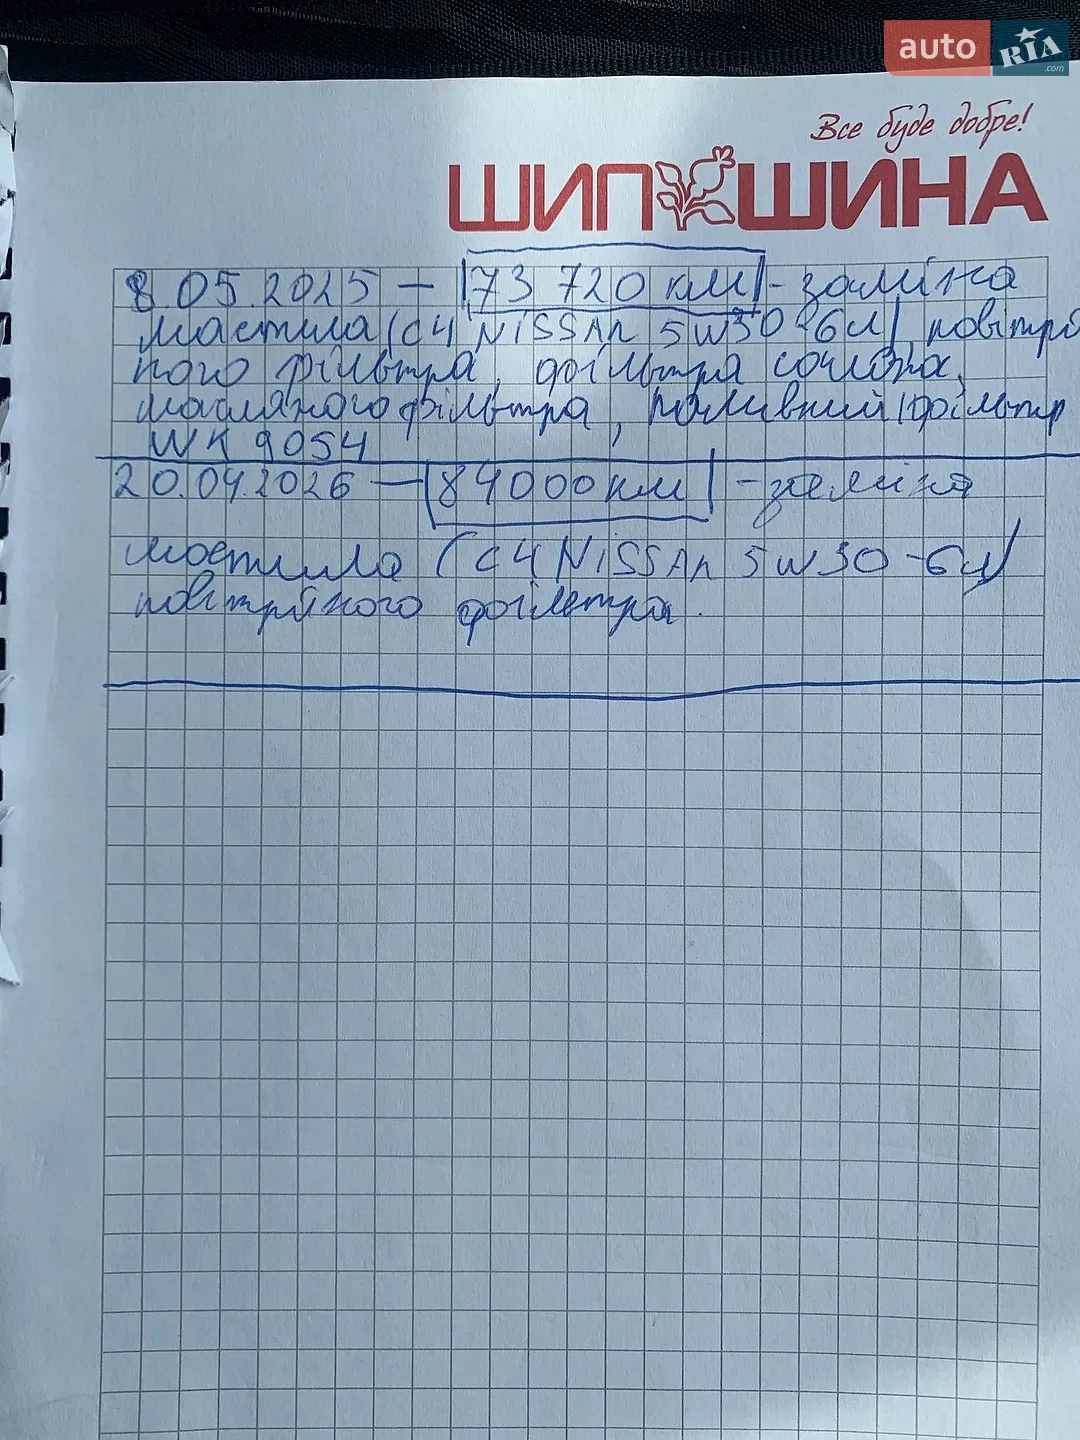 auto RIA .com
Все буде добре!
ШИПШИНА
8.05.2025 — 73 720 км - заміна
мастила (C4 NISSAn 5W30 - 6л), повітря
ного фільтра, фільтра салона,
масляного фільтра, паливний фільтр
WK 9054
20.04.2026 — 84000 км - заміна
мастила (C4 NiSSAn 5W30 - 6л)
повітряного фільтра.